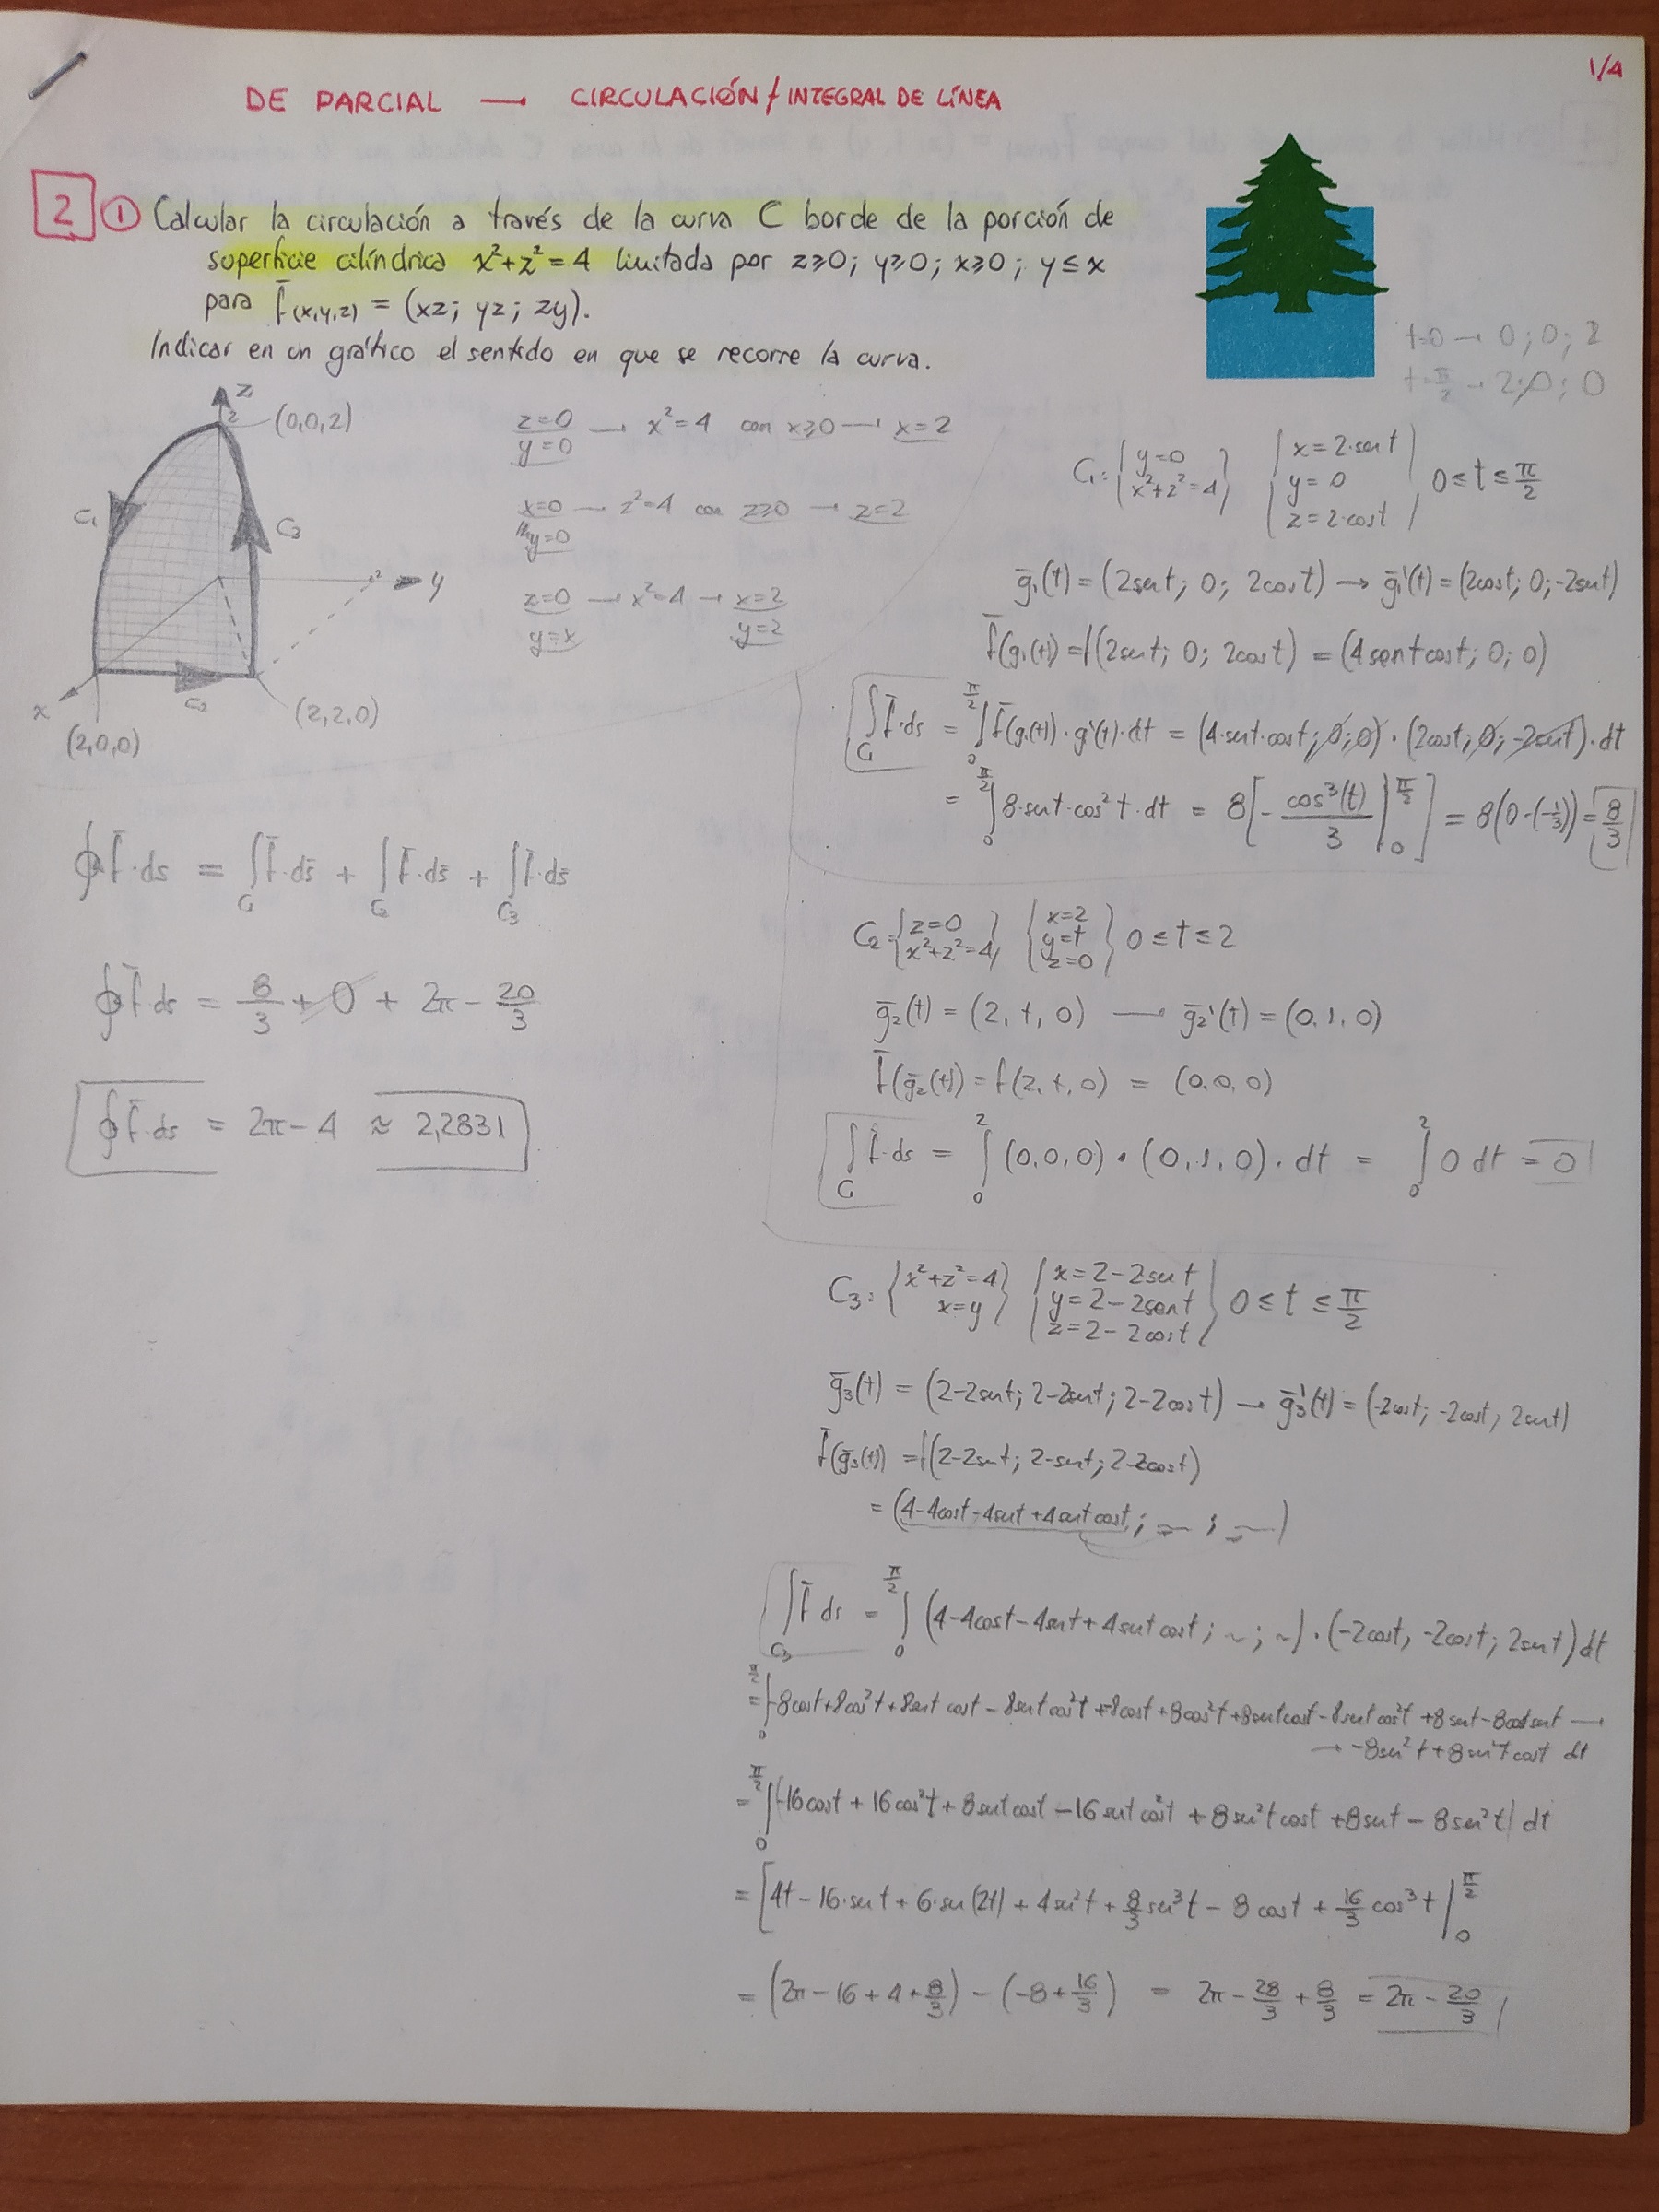 1/4
DE PARCIAL — CIRCULACIÓN / INTEGRAL DE LÍNEA
2 ① Calcular la circulación a través de la curva C borde de la porción de
superficie cilíndrica x²+z²=4 limitada por z≥0; y≥0; x≥0; y≤x
para f̄(x,y,z) = (xz; yz; zy).
Indicar en un gráfico el sentido en que se recorre la curva.
t=0 → 0; 0; 2
t=π/2 → 2; 0; 0
z
2
(0,0,2)
C₁
C₃
2
y
x
C₂
(2,0,0)
(2,2,0)
z=0 → x²=4 con x≥0 → x=2
y=0
x=0 → z²=4 con z≥0 → z=2
y=0
z=0 → x²=4 → x=2
y=x y=2
∮f̄·ds = ∫f̄·ds̄ + ∫f̄·ds̄ + ∫f̄·ds̄
C₁ C₂ C₃
∮f̄·ds = 8/3 + 0 + 2π - 20/3
∮f̄·ds = 2π - 4 ≈ 2,2831
C₁={y=0 x²+z²=4} {x=2·sent y=0 z=2·cost} 0≤t≤π/2
ḡ₁(t) = (2sent; 0; 2cost) → ḡ₁'(t) = (2cost; 0; -2sent)
f̄(g₁(t)) = f(2sent; 0; 2cost) = (4sentcost; 0; 0)
∫C₁ f̄·ds = ∫₀^π/2 f̄(g₁(t))·g'(t)·dt = (4·sent·cost; 0; 0)·(2cost; 0; -2sent)·dt
= ∫₀^π/2 8·sent·cos²t·dt = 8[-cos³(t)/3 |₀^π/2] = 8(0-(-1/3)) = 8/3
C₂={z=0 x²+z²=4} {x=2 y=t z=0} 0≤t≤2
ḡ₂(t) = (2, t, 0) → ḡ₂'(t) = (0,1,0)
f̄(ḡ₂(t)) = f(2, t, 0) = (0,0,0)
∫C₁ f̄·ds = ∫₀² (0,0,0)·(0,1,0)·dt = ∫₀² 0 dt = 0
C₃: {x²+z²=4 x=y} {x=2-2sent y=2-2sent z=2-2cost} 0≤t≤π/2
ḡ₃(t) = (2-2sent; 2-2sent; 2-2cost) → ḡ₃'(t) = (-2cost; -2cost, 2sent)
f̄(ḡ₃(t)) = f(2-2sent; 2-sent; 2-2cost)
= (4-4cost-4sent+4sentcost; ~ ; ~)
∫C₃ f̄ ds = ∫₀^π/2 (4-4cost-4sent+4sentcost; ~ ; ~)·(-2cost, -2cost; 2sent)dt
= ∫₀^π/2 -8cost+8cos²t+8sent cost-8sent cos²t+-8cost+8cos²t+8sentcost-8sent cos²t+8sent-8costsent →
→ -8sen²t+8sen²tcost dt
= ∫₀^π/2 (-16cost+16cos²t+8sentcost-16sentcos²t+8sen²tcost+8sent-8sen²t) dt
= [4t-16·sent+6·sen(2t)+4sen²t+8/3 sen³t-8cost+16/3 cos³t |₀^π/2
= (2π-16+4+8/3)-(-8+16/3) = 2π-28/3+8/3 = 2π-20/3